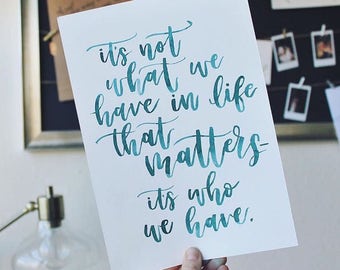 it's not
what we
have in life
that
matters-
it's who
we have.